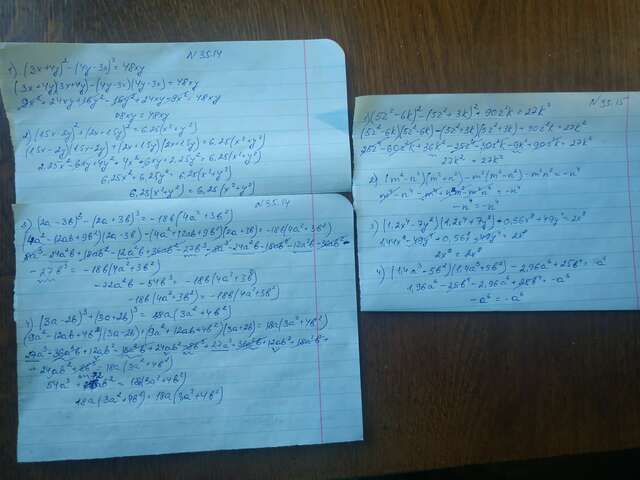 N 35.14
1) (3x+4y)² - (4y-3x)² = 48xy
(3x+4y)(3x+4y) - (4y-3x)(4y-3x) = 48xy
9x² + 24xy + 16y² - 16y² + 24xy - 9x² = 48xy
48xy = 48xy
2) (1.5x-2y)² + (2x+1.5y)² = 6.25(x²+y²)
(1.5x-2y)(1.5x-2y) + (2x+1.5y)(2x+1.5y) = 6.25(x²+y²)
2.25x² - 6xy + 4y² + 4x² + 6xy + 2.25y² = 6.25(x²+y²)
6.25x² + 6.25y² = 6.25(x²+y²)
6.25(x²+y²) = 6.25(x²+y²)
N 35.14
3) (2a-3b)³ - (2a+3b)³ = -18b(4a²+3b²)
(4a² - 12ab + 9b²)(2a-3b) - (4a² + 12ab + 9b²)(2a+3b) = -18b(4a²+3b²)
- 27b³ = -18b(4a²+3b²)
-18b(4a²+3b²) = -18b(4a²+3b²)
4) (3a-2b)³ + (3a+2b)³ = 18a(3a²+4b²)
(9a² - 12ab + 4b²)(3a-2b) + (9a² + 12ab + 4b²)(3a+2b) = 18a(3a²+4b²)
18a(3a²+4b²) = 18a(3a²+4b²)
N 35.15
(5z²-6k)² - (5z²+3k)² + 90z²k = 27k²
(5z²-6k)(5z²-6k) - (5z²+3k)(5z²+3k) + 90z²k = 27k²
27k² = 27k²
-n⁴ = -n⁴
3) (1.2x²-7y²)(1.2x²+7y²) + 0.56x⁴ + 49y⁴ = 2x⁴
1.44x⁴ - 49y⁴ + 0.56x⁴ + 49y⁴ = 2x⁴
2x⁴ = 2x⁴
4) (1.4a³-5b²)(1.4a³+5b²) - 2.96a⁶ + 25b⁴ = -a⁶
1.96a⁶ - 25b⁴ - 2.96a⁶ + 25b⁴ = -a⁶
-a⁶ = -a⁶